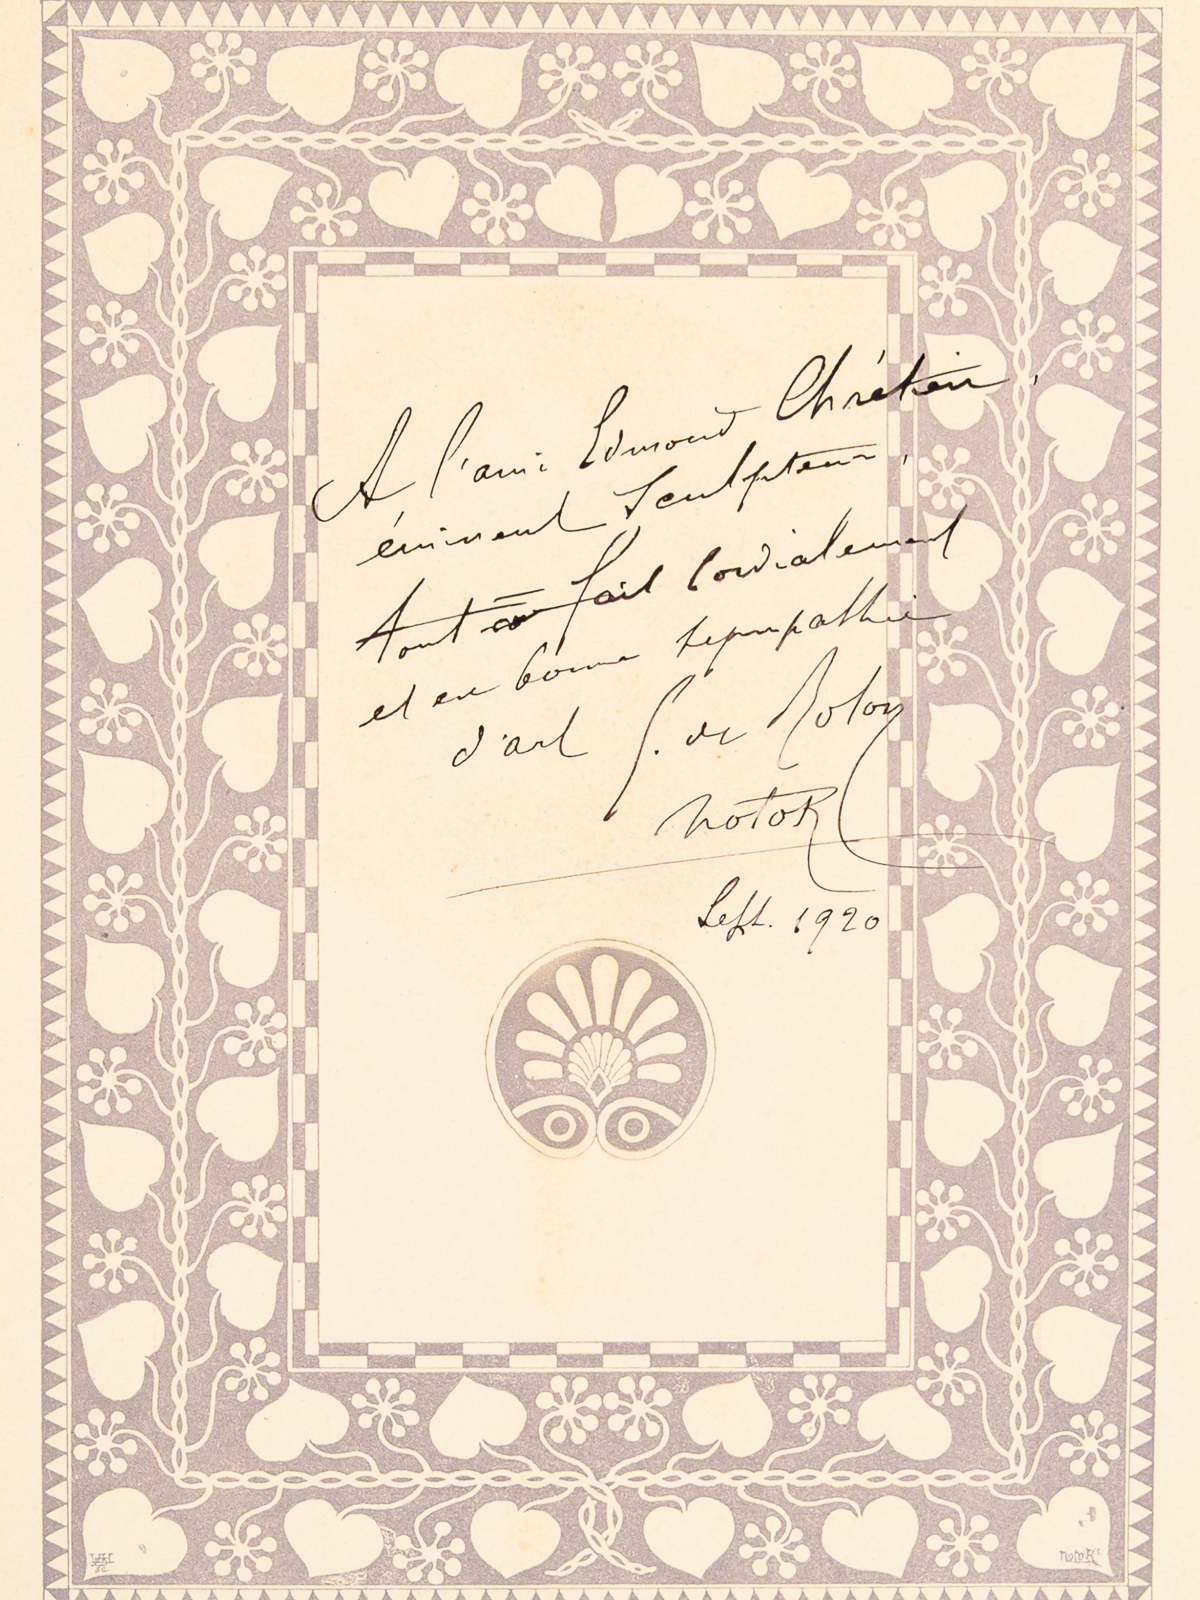 A l'ami Edmond Chrétien,
éminent sculpteur,
tout à fait cordialement
et en bonne sympathie
d'art G. de Roton
NOTOR
Sept. 1920
NOTOR